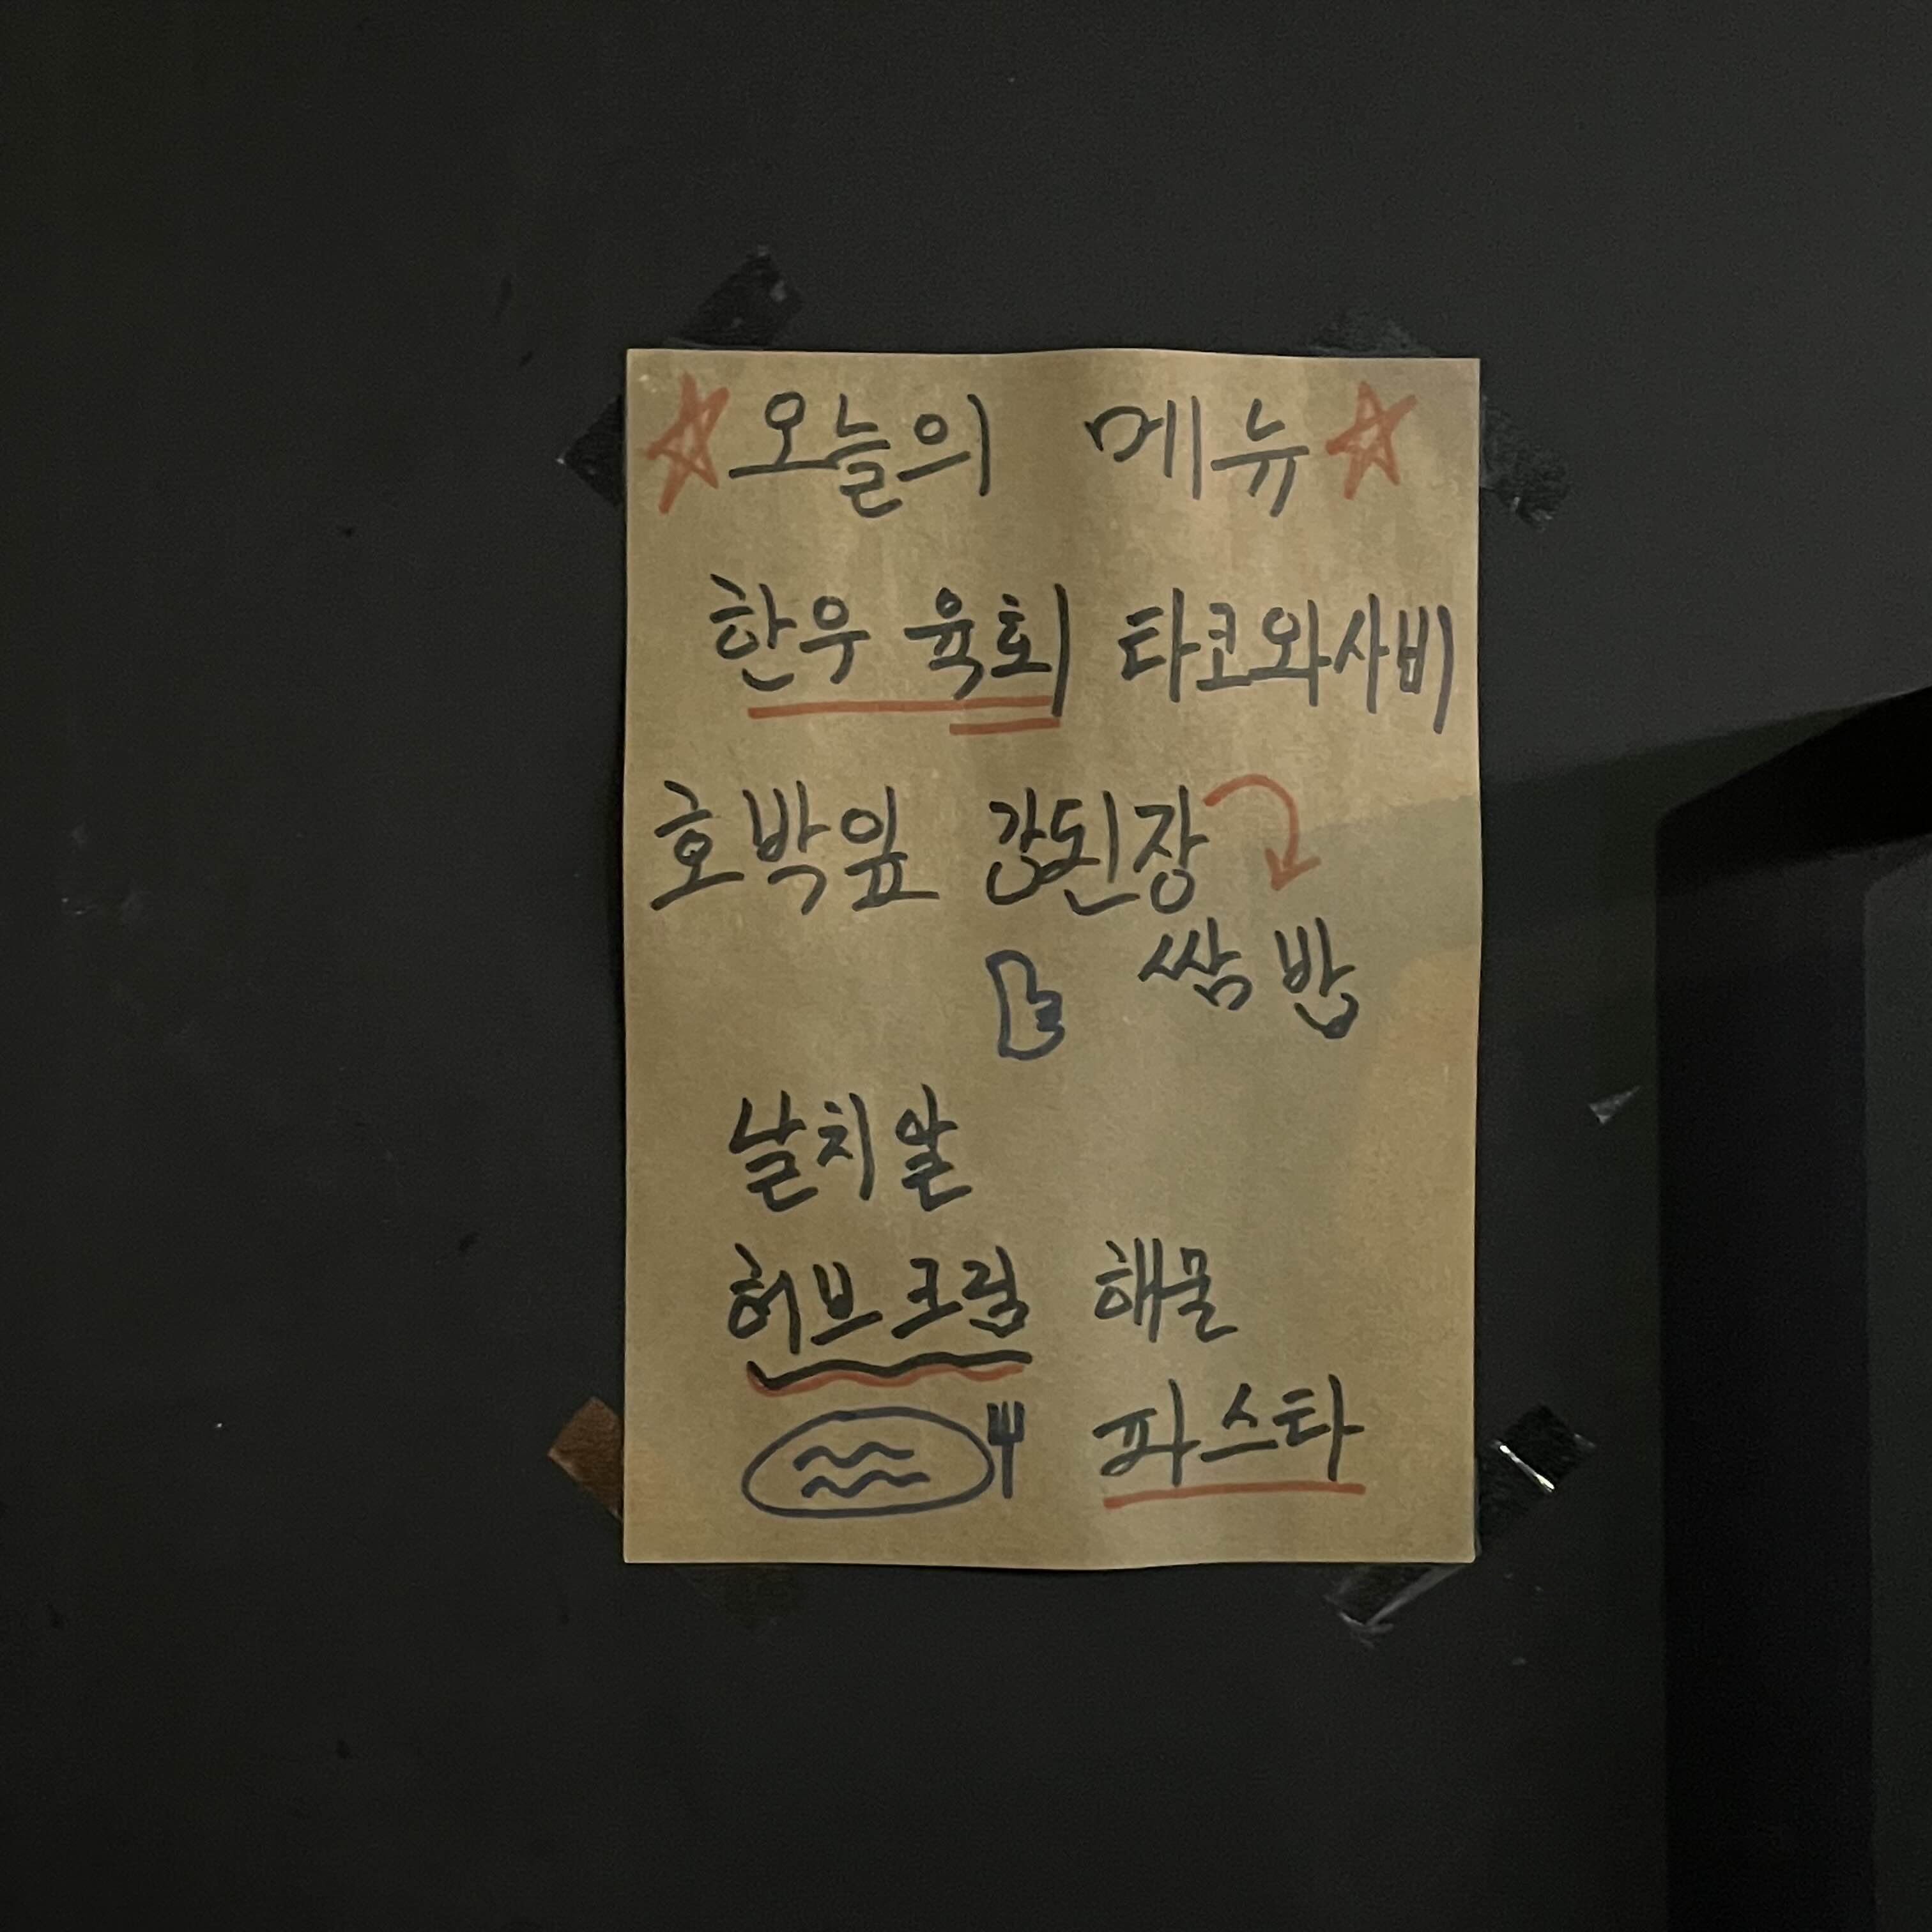 오늘의 메뉴
한우 육회 타코와사비
호박잎 강된장
쌈밥
날치알
허브크림 해물
파스타